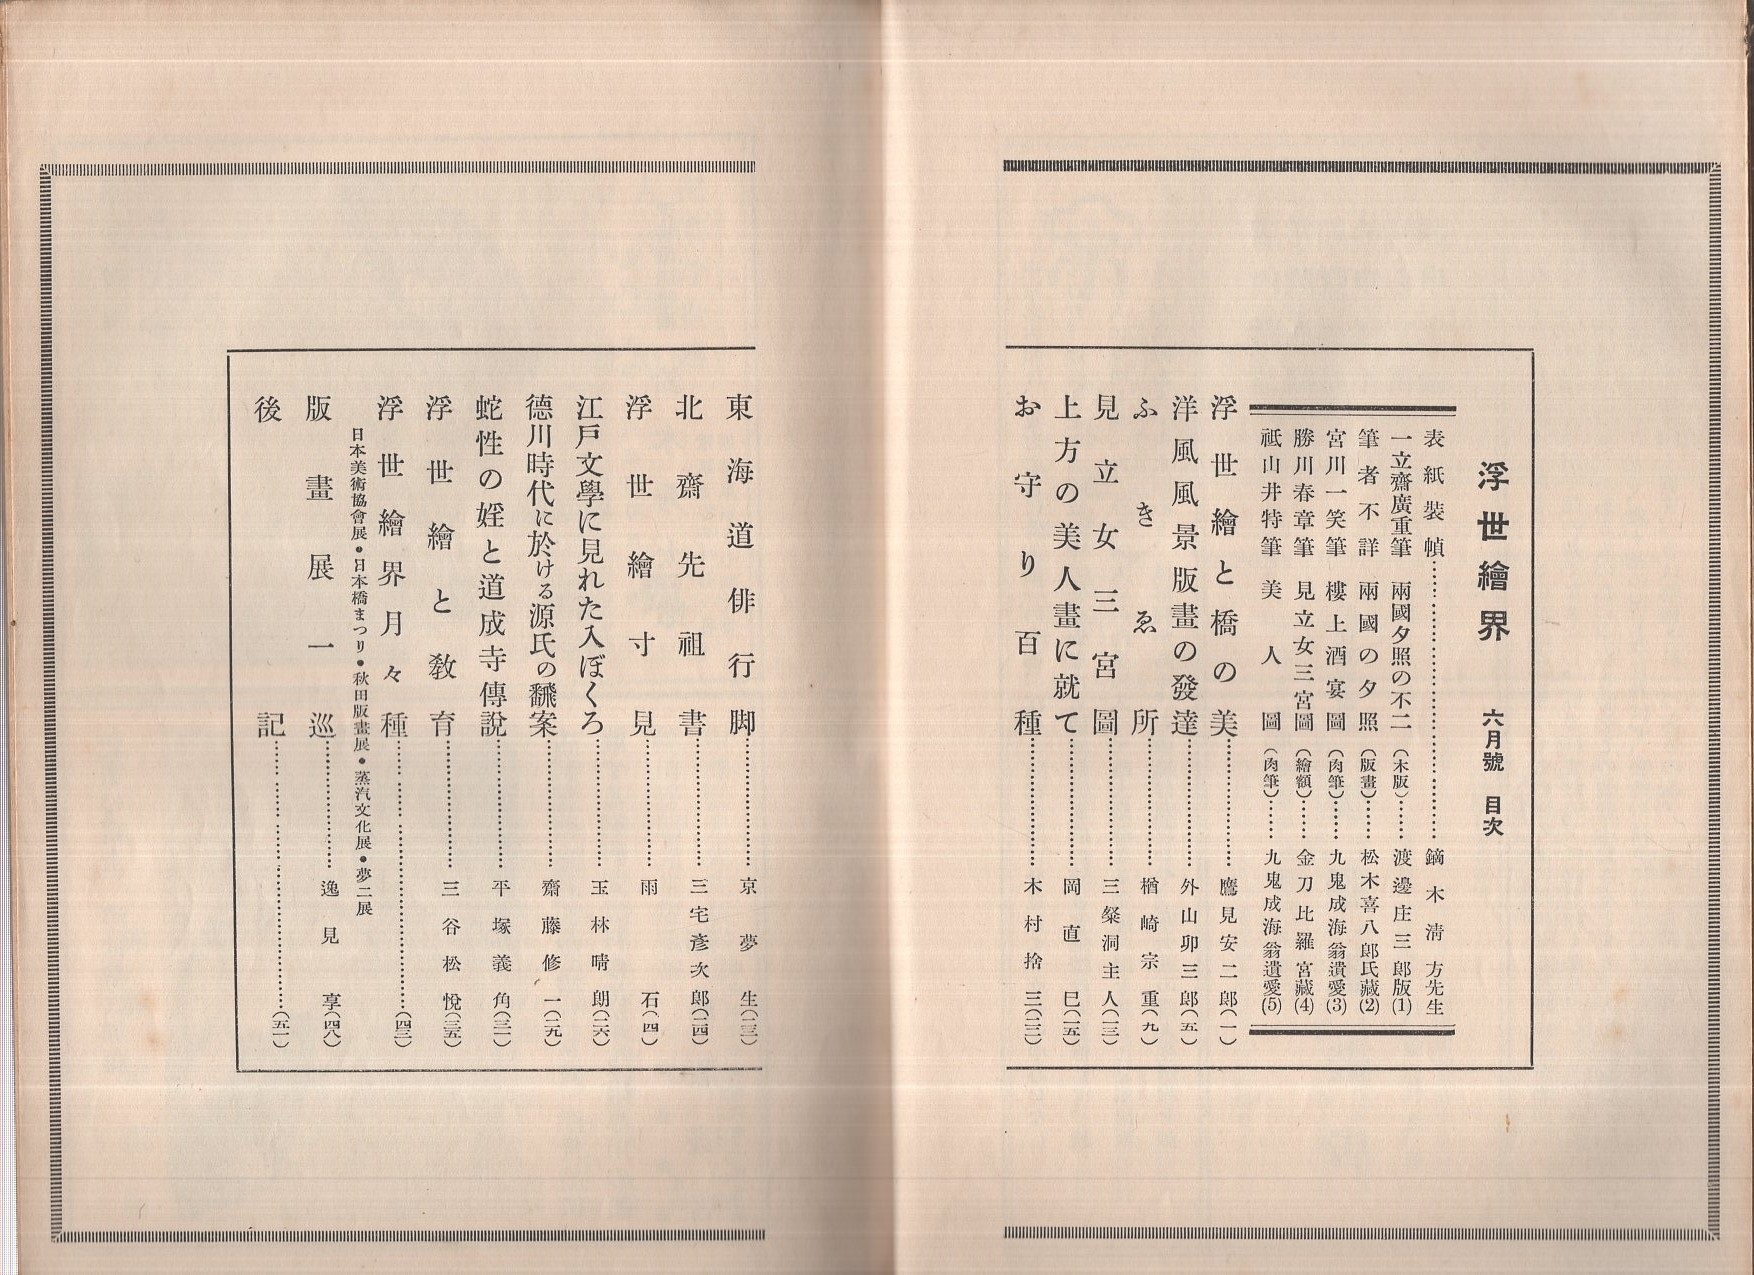 浮世繪界 六月號 目次
表紙裝幀………………………鏑木淸方先生
一立齋廣重筆 兩國夕照の不二(木版)……渡邊庄三郎版(1)
筆者不詳 兩國の夕照(版畫)……松木喜八郎氏藏(2)
宮川一笑筆 樓上酒宴圖(肉筆)……九鬼成海翁遺愛(3)
勝川春章筆 見立女三宮圖(繪額)……金刀比羅宮藏(4)
祇山井特筆 美人圖(肉筆)……九鬼成海翁遺愛(5)
浮世繪と橋の美……………鷹見安二郎(一)
洋風風景版畫の發達……………外山卯三郎(五)
ふきゑ所……………楢崎宗重(九)
見立女三宮圖……………三粲洞主人(一三)
上方の美人畫に就て……………岡直巳(一五)
お守り百種……………木村捨三(二三)
東海道俳行脚……………京夢生(一三)
北齋先祖書……………三宅彥次郎(一四)
浮世繪寸見……………雨石(四)
江戸文學に見れた入ぼくろ……………玉林晴朗(二六)
德川時代に於ける源氏の飜案……………齋藤修一(二九)
蛇性の婬と道成寺傳說……………平塚義角(三一)
浮世繪と敎育……………三谷松悅(三五)
浮世繪界月々種……………………………(四三)
日本美術協會展●日本橋まつり●秋田版畫展●蒸汽文化展●夢二展
版畫展一巡……………逸見享(四八)
後記……………………………(五一)